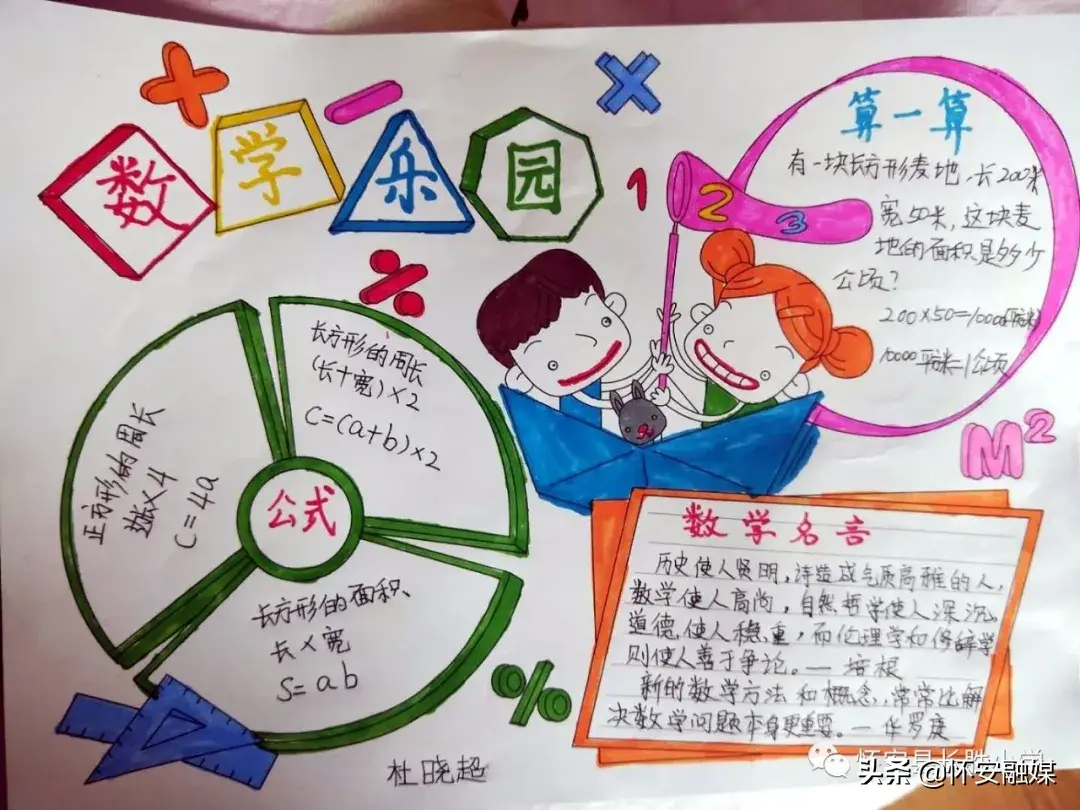 数学乐园
1 2 3
算一算
有一块长方形麦地,长200米
宽50米,这块麦
地的面积是多少
公顷?
200×50=10000平方米
10000平方米=1公顷
M²
长方形的周长
(长+宽)×2
C=(a+b)×2
正方形的周长
边长×4
C=4a
公式
长方形的面积、
长×宽
S=ab
数学名言
历史使人贤明,诗造成气质高雅的人,
数学使人高尚,自然哲学使人深沉。
道德使人稳重,而伦理学和修辞学
则使人善于争论。—培根
新的数学方法和概念,常常比解
决数学问题本身更重要。—华罗庚
杜晓超
怀安县长胜小学
头条 @怀安融媒